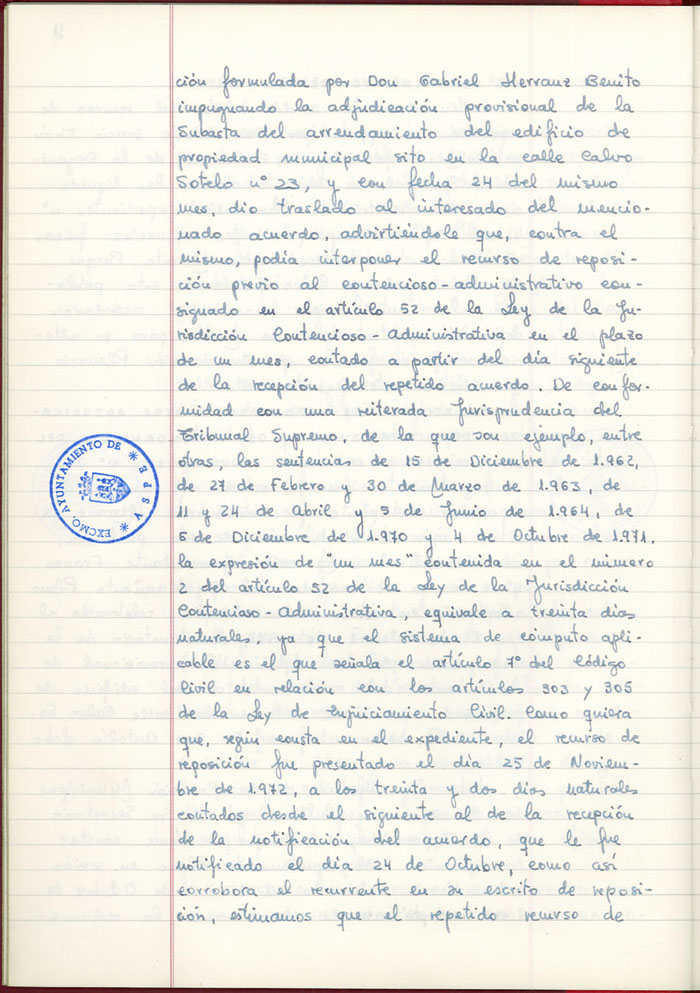 ción formulada por Don Gabriel Herranz Benito
impugnando la adjudicación provisional de la
Subasta del arrendamiento del edificio de
propiedad municipal sito en la calle Calvo
Sotelo nº 23, y con fecha 24 del mismo
mes, dio traslado al interesado del mencio-
nado acuerdo, advirtiéndole que, contra el
mismo, podía interponer el recurso de reposi-
ción previo al contencioso-administrativo con-
signado en el artículo 52 de la Ley de la Ju-
risdicción Contencioso-Administrativa en el plazo
de un mes, contado a partir del día siguiente
de la recepción del repetido acuerdo. De confor-
midad con una reiterada Jurisprudencia del
Tribunal Supremo, de la que son ejemplo, entre
otras, las sentencias de 15 de Diciembre de 1.962,
de 27 de Febrero y 30 de Marzo de 1.963, de
11 y 24 de Abril y 5 de Junio de 1.964, de
5 de Diciembre de 1.970 y 4 de Octubre de 1.971,
la expresión de "un mes" contenida en el número
2 del artículo 52 de la Ley de la Jurisdicción
Contencioso-Administrativa, equivale a treinta dias
naturales, ya que el sistema de cómputo apli-
cable es el que señala el artículo 7º del Código
Civil en relación con los artículos 303 y 305
de la Ley de Enjuiciamiento Civil. Como quiera
que, según consta en el expediente, el recurso de
reposición fue presentado el dia 25 de Noviem-
bre de 1.972, a los treinta y dos dias naturales
contados desde el siguiente al de la recepción
de la notificación del acuerdo, que le fue
notificado el dia 24 de Octubre, como así
corrobora el recurrente en su escrito de reposi-
ción, estimamos que el repetido recurso de
EXCMO. AYUNTAMIENTO DE * YEPES *